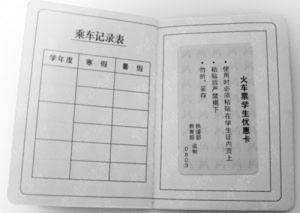 乘车记录表
学年度 寒假 暑假
火车票学生优惠卡
·使用时必须粘贴在学生证内页上
·粘贴后严禁揭下
·勿折、妥存
铁道部
教育部 监制
0803